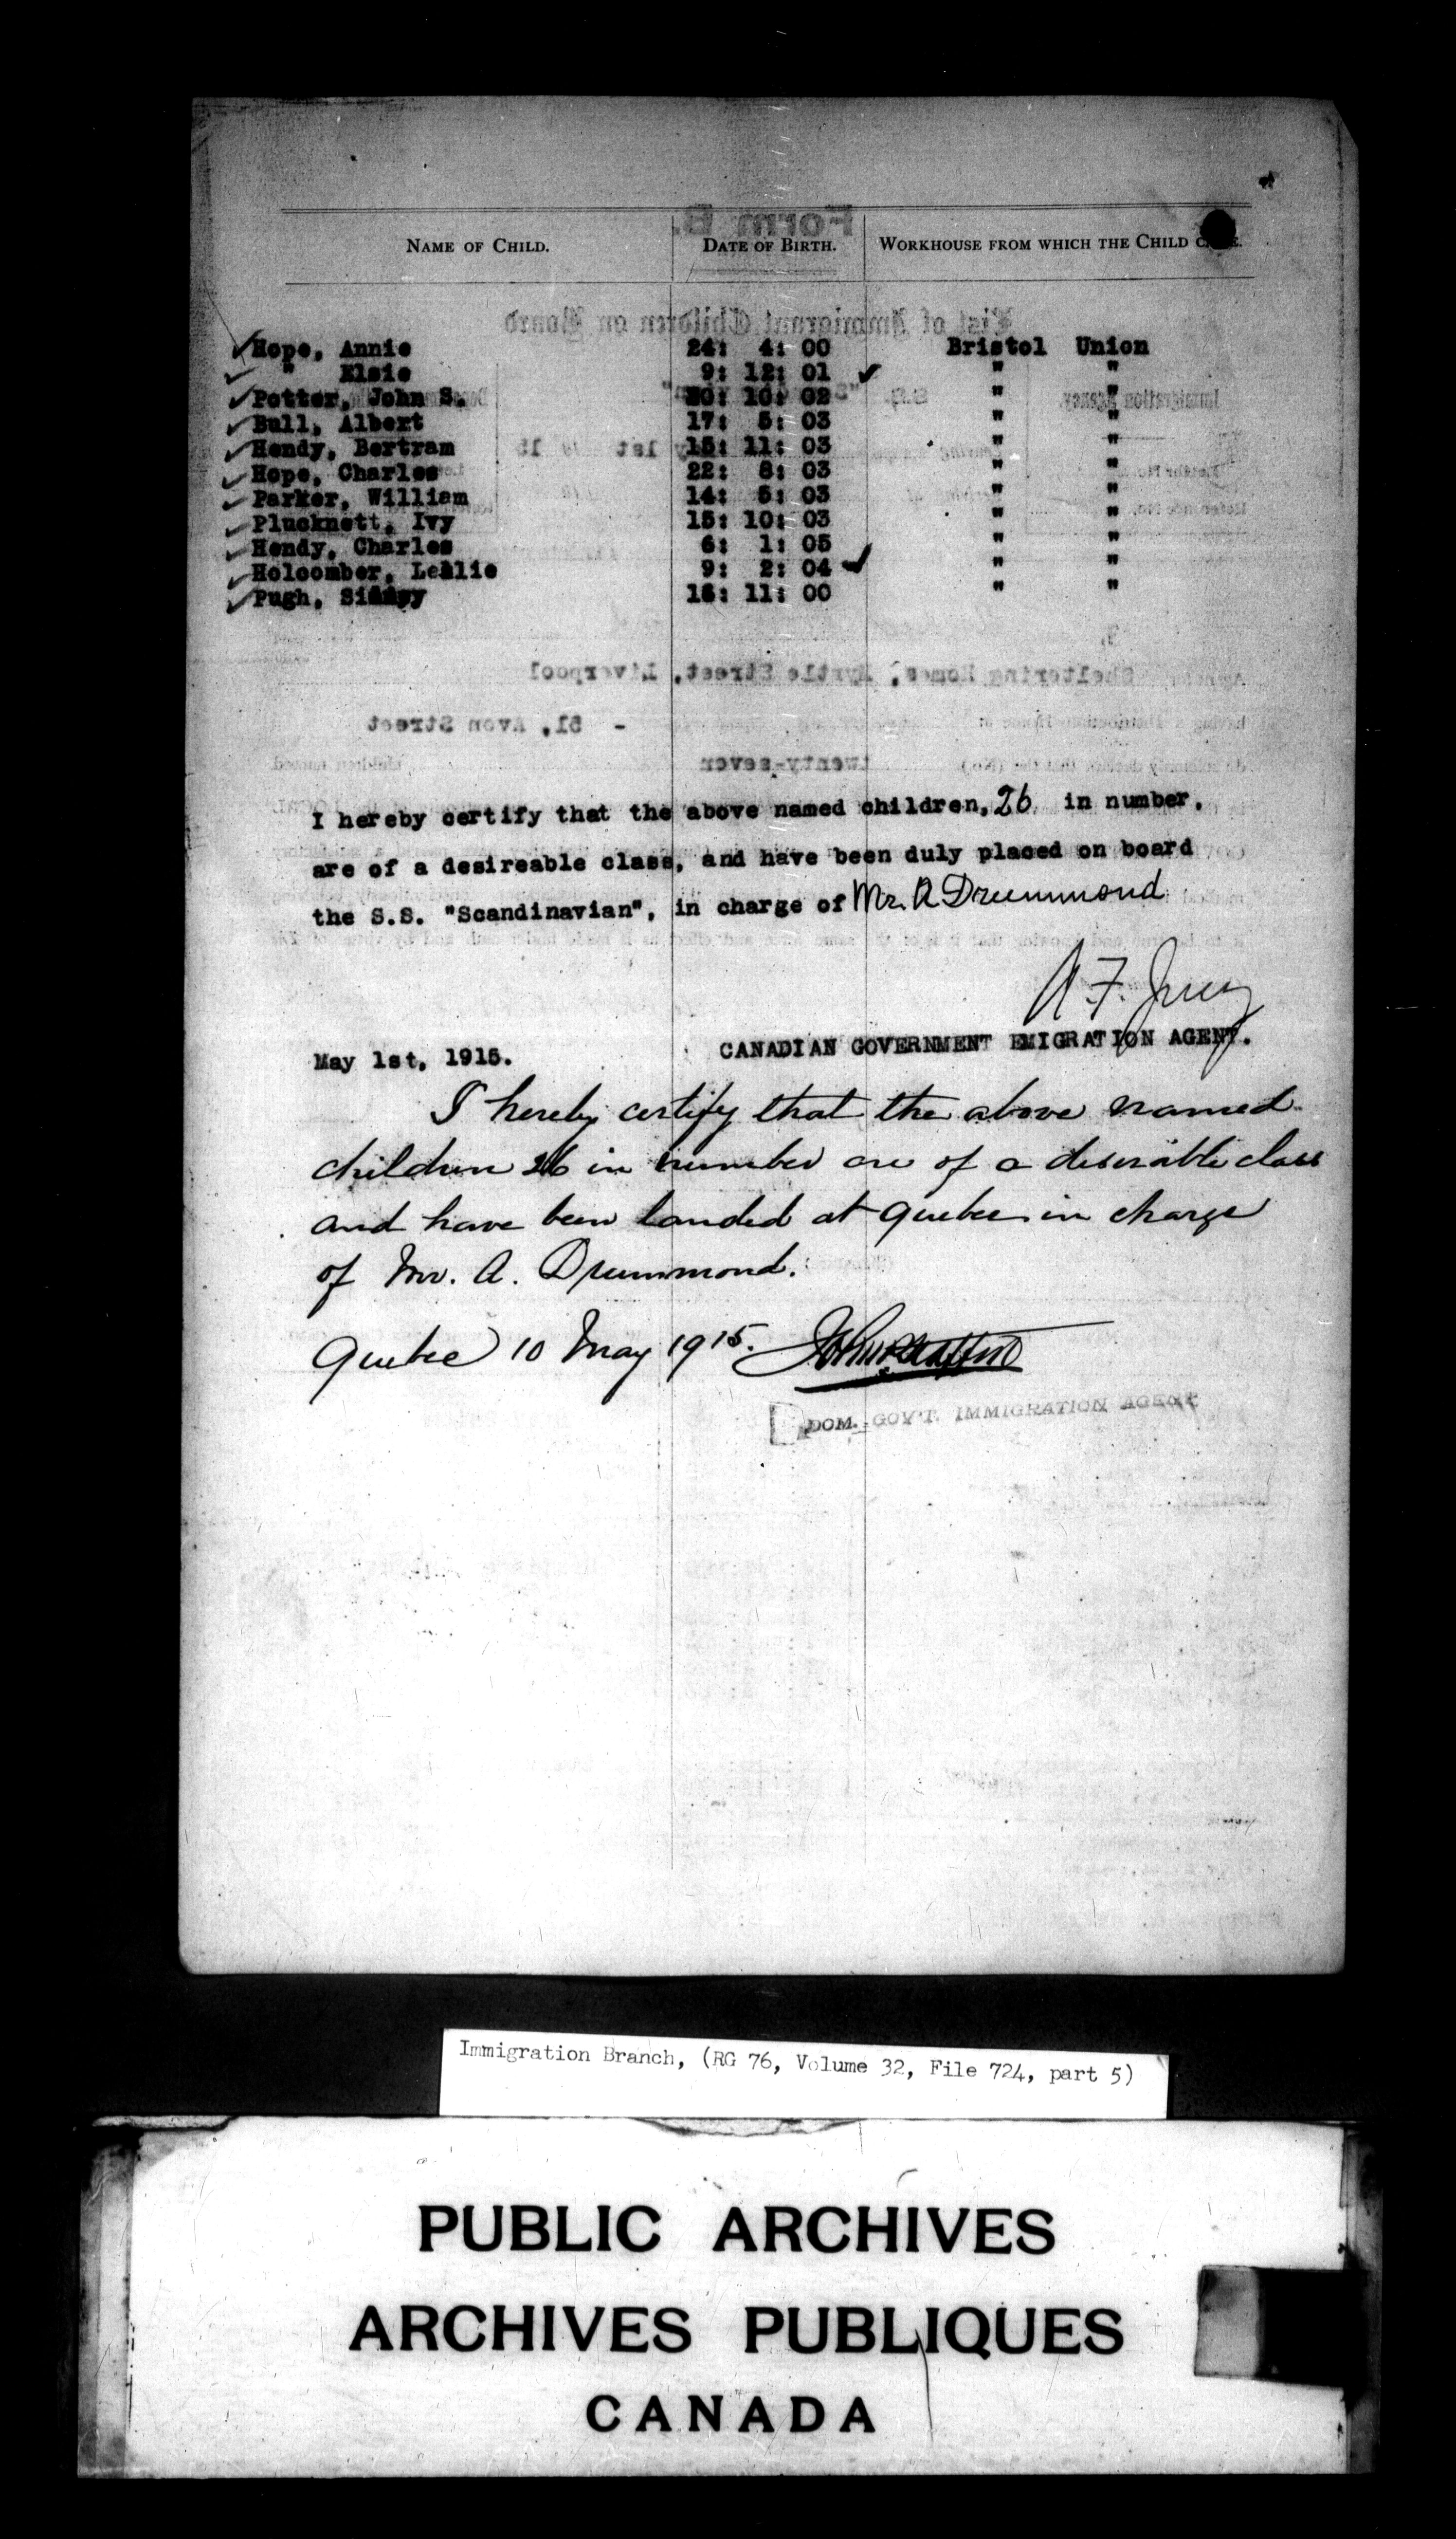 NAME OF CHILD. DATE OF BIRTH. WORKHOUSE FROM WHICH THE CHILD
Hope, Annie 24: 4: 00 Bristol Union
" Elsie 9: 12: 01 " "
Potter, John S. 10: 02 " "
Bull, Albert 17: 5: 03 " "
Hendy, Bertram 15: 11: 03 " "
Hope, Charles 22: 8: 03 " "
Parker, William 14: 5: 03 " "
Plucknett, Ivy 15: 10: 03 " "
Hendy, Charles 6: 1: 05 " "
Holcomber, Leslie 9: 2: 04 " "
Pugh, 11: 00 " "
I hereby certify that the above named children, 26 in number,
are of a desireable class, and have been duly placed on board
the S.S. "Scandinavian", in charge of Mr. A Drummond
A. F.
May 1st, 1915. CANADIAN GOVERNMENT EMIGRATION AGENT.
I hereby certify that the above named
children 26 in number are of a desirable class
and have been landed at Quebec in charge
of Mr. A. Drummond.
Quebec 10 May 1915.
DOM. GOV'T. IMMIGRATION AGENT
Immigration Branch, (RG 76, Volume 32, File 724, part 5)
PUBLIC ARCHIVES
ARCHIVES PUBLIQUES
CANADA